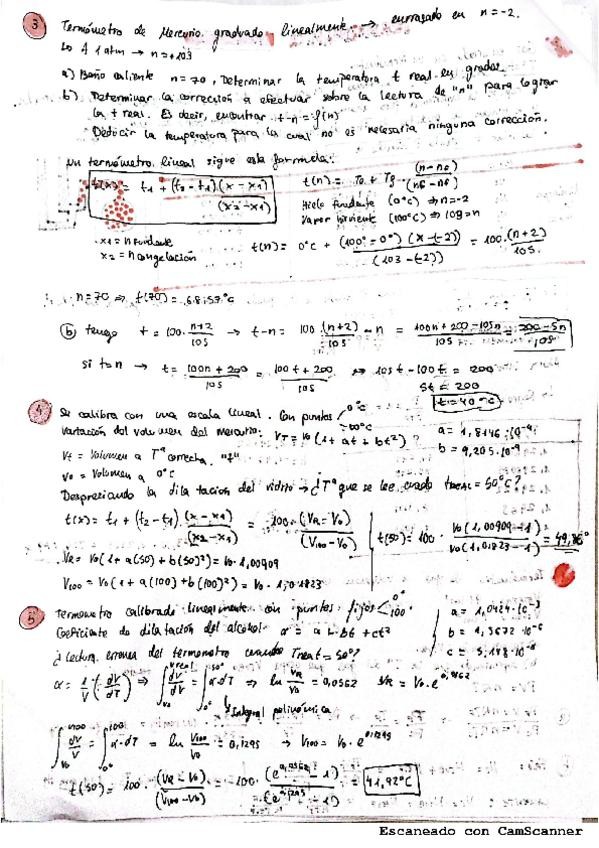 ③ Termómetro de Mercurio graduado linealmente → enrasado en n=-2.
A 1 atm → n=+103
a) Baño caliente n=70, Determinar la temperatura t real en grados
b) Determinar la corrección a efectuar sobre la lectura de "n" para lograr
la t real. Es decir, encontrar t-n=f(n)
Deducir la temperatura para la cual no es necesaria ninguna corrección.
Un termómetro lineal sigue esta formula:
t(x) = t1 + (t2-t1)·(x-x1)/(x2-x1)
t(n) = T0 + T8·(n-n0)/(n6-n0)
Hielo fundente (0°C) ⇒ n=-2
Vapor hirviente (100°C) ⇒ 103=n
x1 = n fundente
x2 = n congelación
t(n) = 0°C + (100°-0°)·(x-(-2))/(103-(-2)) = 100·(n+2)/105.
n=70 ⇒ t(70) = 68,57°C
ⓑ tengo t = 100·(n+2)/105 → t-n = 100·(n+2)/105 - n = (100n+200-105n)/105 = (200-5n)/105
si t=n → t = (100n+200)/105 = (100t+200)/105 ⇒ 105t-100t = 200
5t = 200
t=40°C
④ Se calibra con una escala lineal. Con puntos 0°C 100°C
Variación del volumen del mercurio: VT = V0(1+at+bt²)
a = 1,8146·10-4
b = 9,205·10-9
Vt = Volumen a Tª correcta. "t"
V0 = Volumen a 0°C
Despreciando la dilatación del vidrio → ¿Tª que se lee cuando tREAL = 50°C?
t(x) = t1 + (t2-t1)·(x-x1)/(x2-x1) = 100·(VR-V0)/(V100-V0)
t(50) = 100·V0(1,00909-1)/V0(1,01823-1) =
VR = V0(1+a(50)+b(50)²) = V0·1,00909
V100 = V0(1+a(100)+b(100)²) = V0·1,01823
⑤ Termometro calibrado linealmente con puntos fijos 0° 100°
Coeficiente de dilatación del alcohol α = a+bt+ct²
a = 1,0424·10-3
b = 1,5672·10-6
c = 5,148·10-8
¿Lectura errónea del termometro cuando Treal = 50°?
α = 1/V·(dV/dT) ⇒ ∫ dV/V = ∫ α·dT ⇒ ln VR/V0 = 0,0562 VR = V0·e^0,0562
Integral polinómica
∫ dV/V = ∫ α·dT = ln V100/V0 = 0,1295 → V100 = V0·e^0,1295
t(50) = 100·(VR-V0)/(V100-V0) = 100·(e^0,0562 - 1)/(e^0,1295 - 1) = 41,92°C
Escaneado con CamScanner